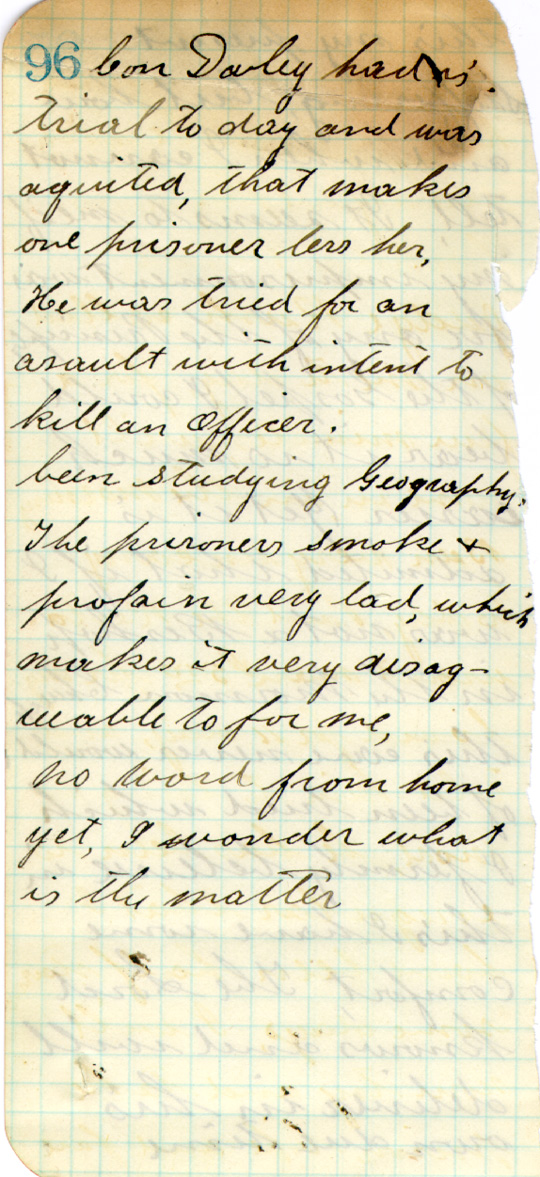 96 Con Davley had is
trial to day and was
aquited, that makes
one prisoner less her,
He was tried for an
asault with intent to
kill an Officer.
been studying Geography.
The prisoners smoke +
profain very bad, which
makes it very disag-
reable to for me,
no word from home
yet, I wonder what
is the matter